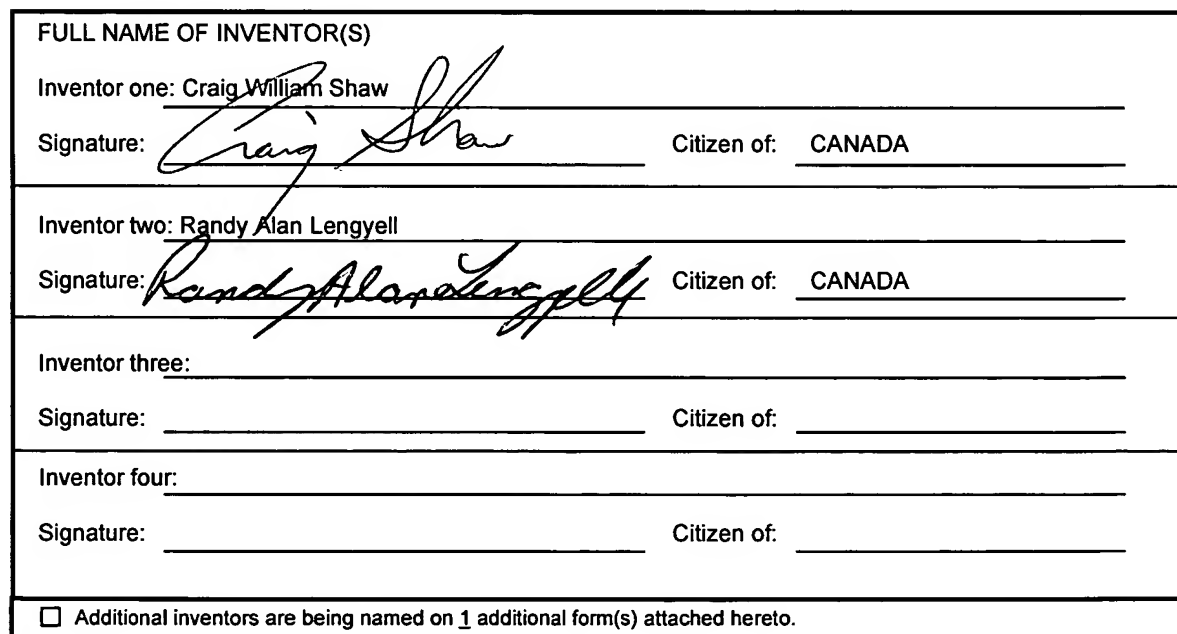 FULL NAME OF INVENTOR(S)
Inventor one: Craig William Shaw
Signature: Craig Shaw Citizen of: CANADA
Inventor two: Randy Alan Lengyell
Signature: Randy Alan Lengyell Citizen of: CANADA
Inventor three:
Signature: Citizen of:
Inventor four:
Signature: Citizen of:
☐ Additional inventors are being named on 1 additional form(s) attached hereto.